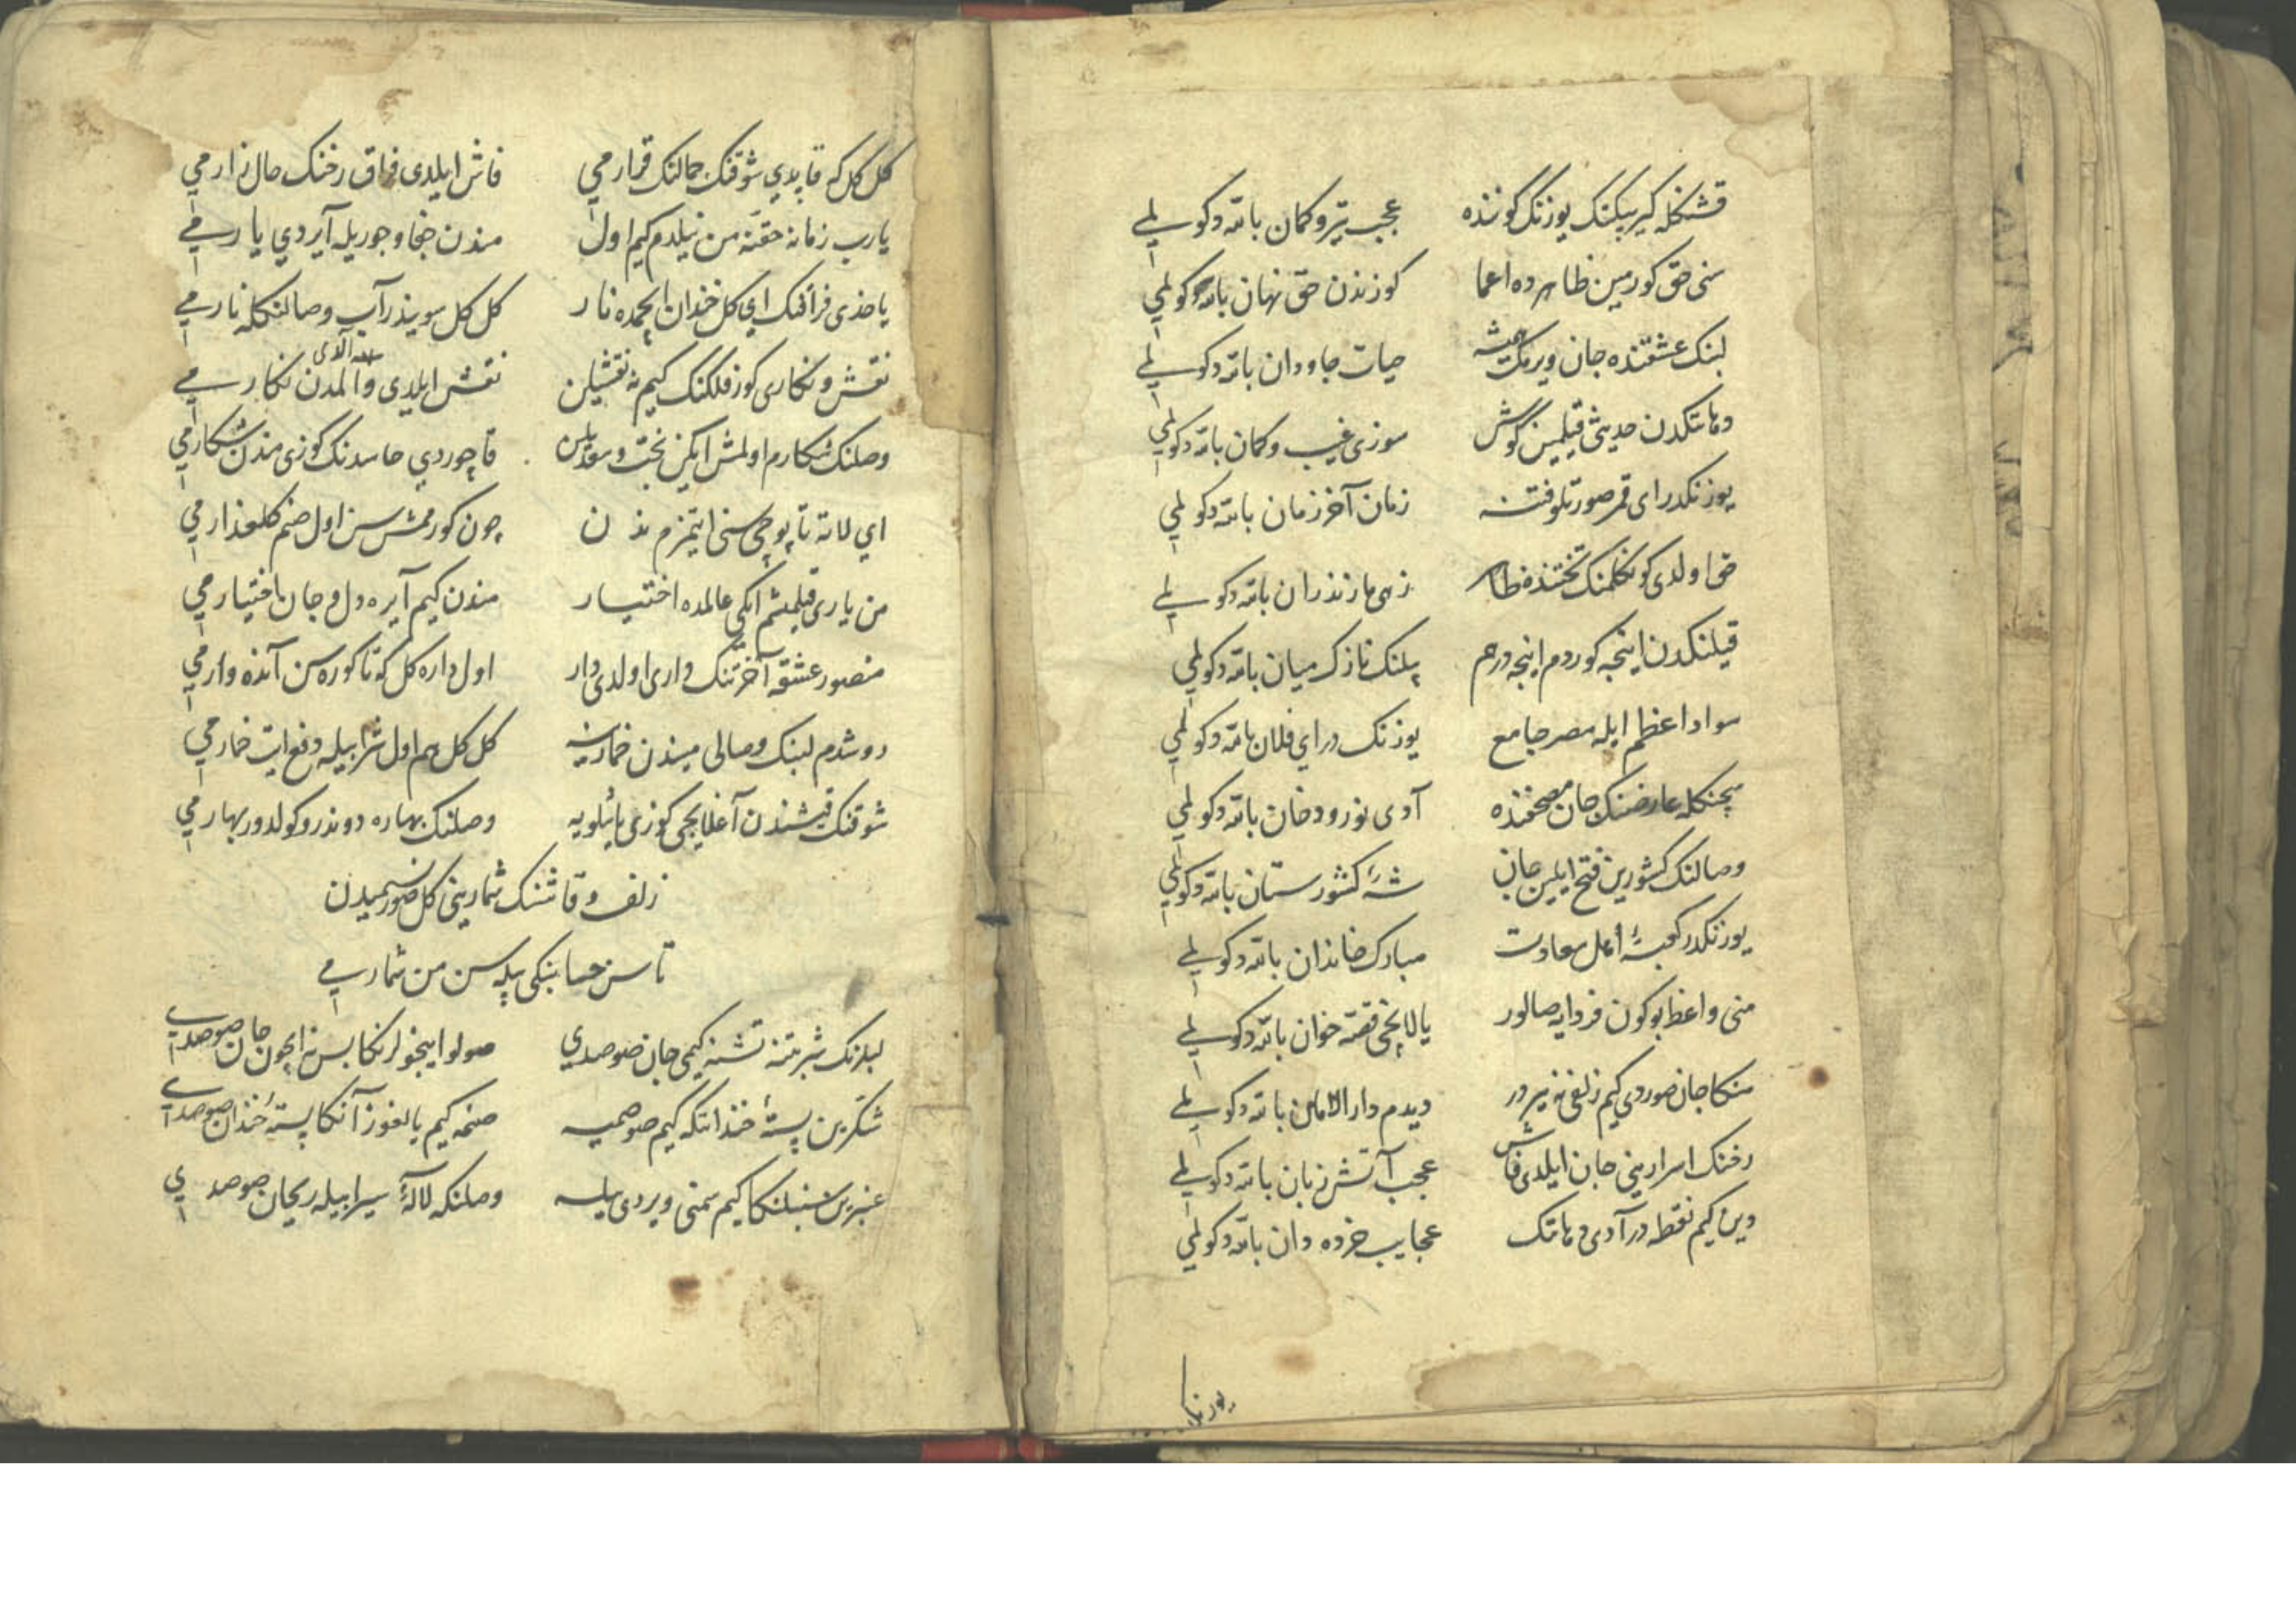 قشنکله کیرپیکنک یوزنک کوننده عجب تیر و کمان باتدوکوملی
سنی حق کورمین ظاهرده اعما کوزندن حق نهان باتدوکوملی
لبنک عشقنده جان ویرمک همیشه حیات جاودان باتدوکوملی
دهانتکدن حدیثی قیلمین گوش سوزی غیب و کمان باتدوکوملی
یوزنکدر ای قمر صورتلو فتنه زمان آخر زمان باتدوکوملی
اولدی کوکلمنک تختنده زهی باتدوکوملی
قیلنکدن اینجه کوردم اینجه درهم بیلنک نازک میان باتدوکوملی
سواد اعظم ایله مصر جامع یوزنک در ای فلان باتدوکوملی
سچنکله عارضنک جان مصحفنده آدی نوروودخان باتدوکوملی
وصالنک کشورین فتح ایلین جان شه کشورستان باتدوکوملی
یوزنکدر کعبهٔ اهل سعادت مبارک خاندان باتدوکوملی
منی واعظ بوکون فردایه صالور یالانجی قصّه خوان باتدوکوملی
منکا جان صوردی کیم زلفی نه یردر دیدم دار الامان باتدوکوملی
رخنک اسرارینی جان ایلدی فاش عجب آتش زبان باتدوکوملی
دین کیم نقطه در آدی دهانتک عجایب خرده دان باتدوکوملی
کل کل که قاپدی شوقنک جمالنک قرارمی فاش ایلدی فراق رخنک حال زارمی
یارب زمانه حقنه من نیلدم کیم اول مندن جفا و جوریله آیردی یارمی
یاخدی فراقنک ای کل خندان ایچمده نار کل کل سویندر آب وصالنکله نارمی
نقش و نکاری کوز فلکنک کیم نه نقشیلن نقش ایلدی و المدن نکارمی
آلدی
وصلنک شکارم اولمش ایکن بخت و سعدیلن قاچوردی حاسدنک کوزی مندن شکارمی
ای لاته تاپوجی سنی ایتمزم ندن چون کورممش سن اول صنم کلعذارمی
من یاری قیلمشم ایکی عالمده اختیار مندن کیم آیره دل و جان اختیارمی
منصور عشقه آخرتنک داری اولدی دار اول داره کل که تا کوره سن آنده وارمی
دوشدم لبنک وصالی میندن خمارینه کل کل هم اول شرابیله دفع ایت خمارمی
شوقنک قیشندن آغلایجی کوزی یاشلویه وصلنک بهاره دوندر و کولدور بهارمی
زلف و قاشنک شمارینی کل صور نسیمیدن
تا سن حسابنکی بیله سن من شمارمی
لبلرنک شربتنه تشنه کیمی جان صوصدی صولو اینجولرنکا بس نه ایچون جان صوصدی
شکرین پستهٔ خندانتکه کیم صوصمیه صنمه کیم یالغوز آنکا پستهٔ خندان صوصدی
عنبرین سنبلنکا کیم سمنی ویردی یله وصلنکه لالهٔ سیرابیله ریحان صوصدی